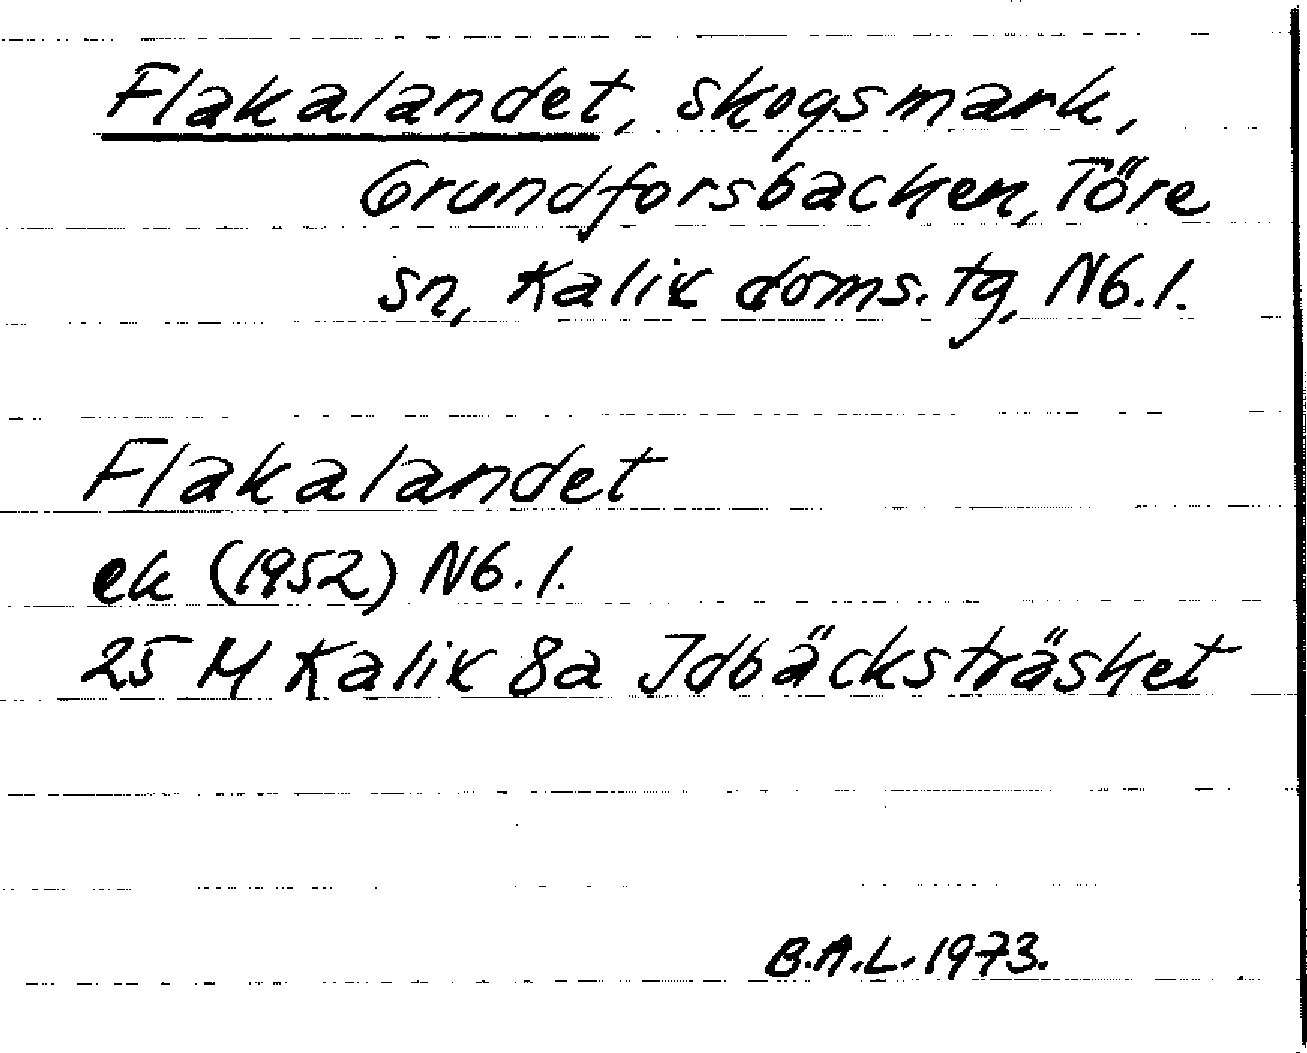 Flakalandet, skogsmark,
Grundforsbacken, Töre
sn, Kalix doms. tg, Nb.l.
Flakalandet
ek (1952) Nb.l.
25 M Kalix 8a Idbäcksträsket
B.A.L. 1973.